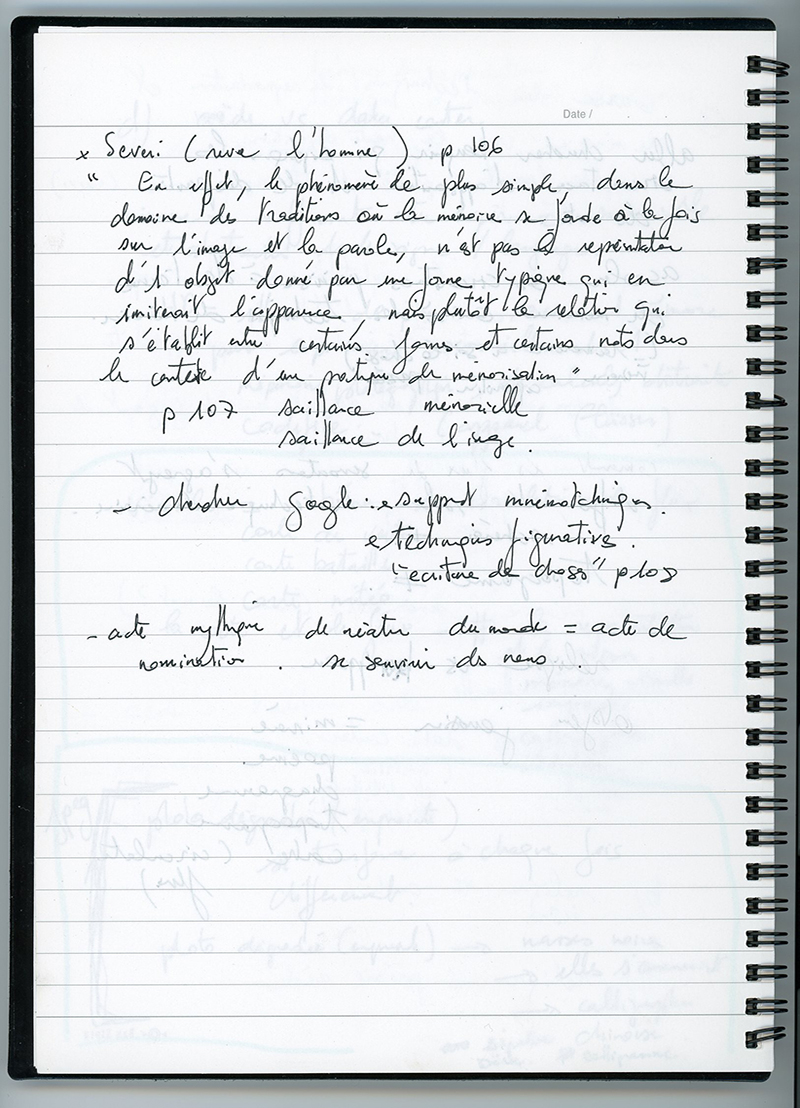 Date /
x Severi (revue l'homme) p 106
" En effet, le phénomène de plus simple, dans le
domaine des traditions où la mémoire se fonde à la fois
sur l'image et la parole, n'est pas la représentation
d'1 objet donné par une forme typique qui en
imiterait l'apparence, mais plutôt la relation qui
s'établit entre certaines formes et certains mots dans
le contexte d'une pratique de mémorisation "
p 107 saillance mémorielle
saillance de l'image.
- chercher Google : support mnémotechniques.
techniques figuratives.
"écriture de choses" p108
- acte mythique de création du monde = acte de
nomination . se souvenir des noms .